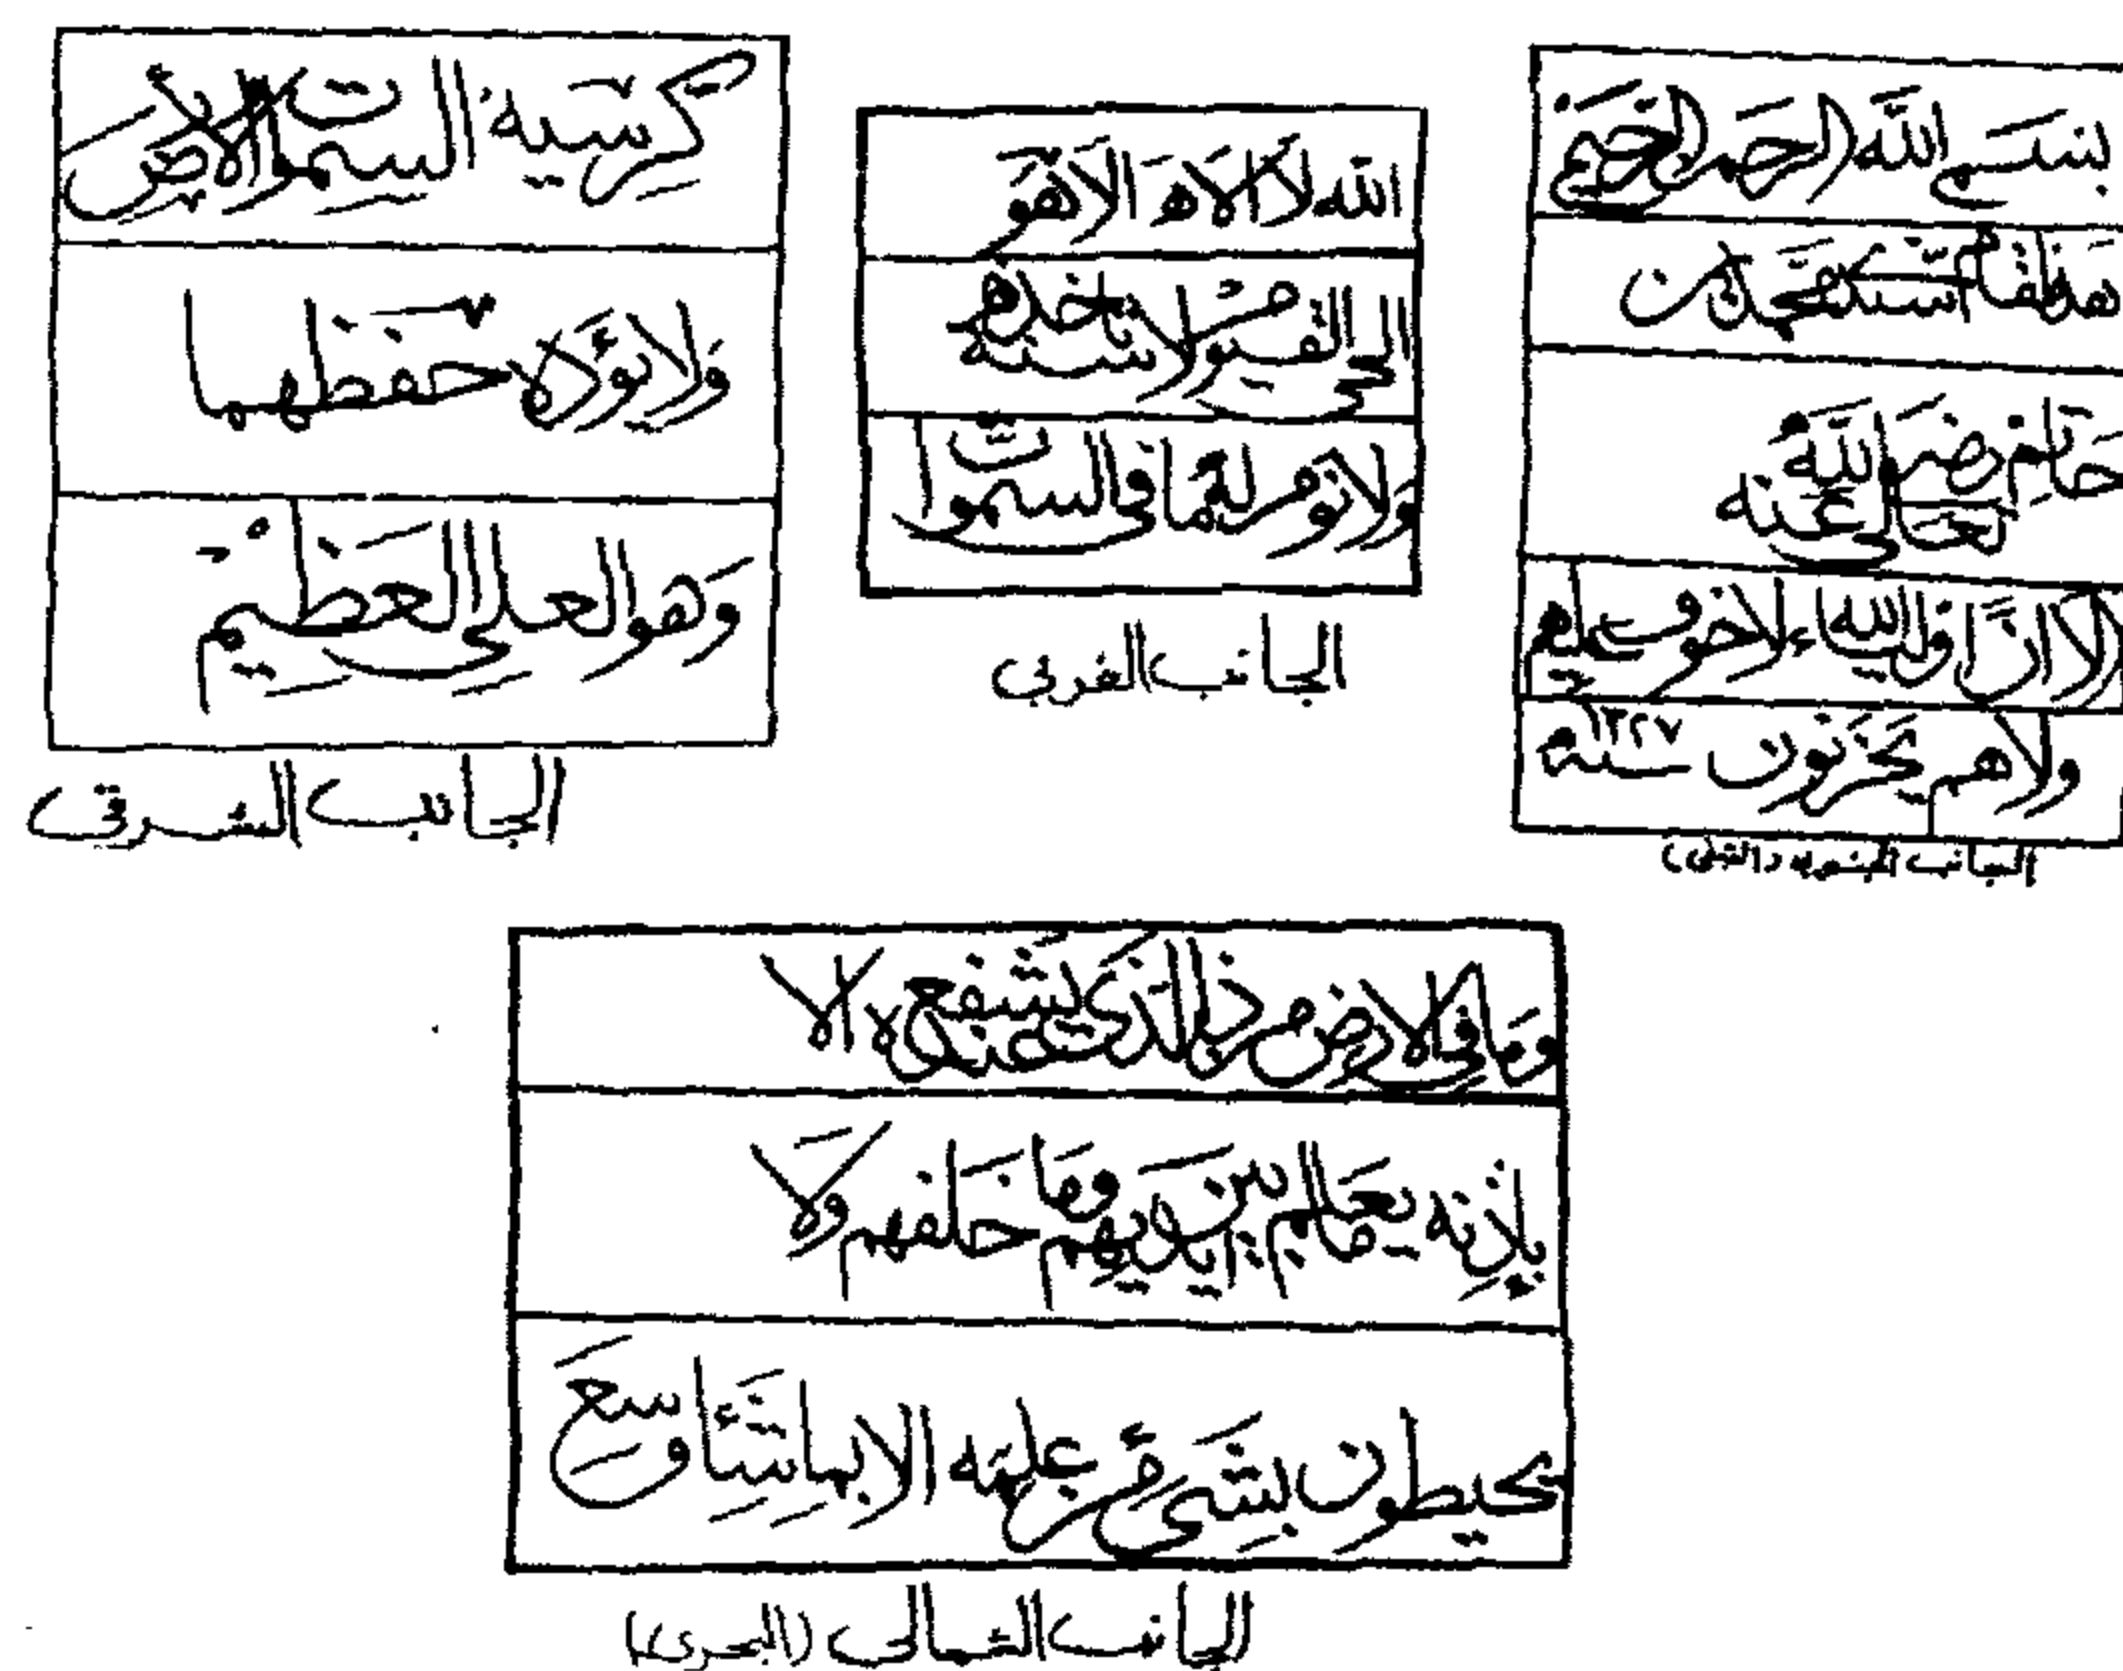 بسم الله الرحمن الرحيم
هذا مقام
حاتم رضى الله
تعالى عنه
الا ان اوليا الله لا خوف عليهم
ولا هم يحزنون سنة ١٣٢٧
الجانب (القبلى)
الله لا الاه الا هو
الحى القيوم لا تاخذه سنة
ولا نوم له ما فى السموات
الجانب الغربى
كرسيه السموات والارض
ولا يؤده حفظهما
وهو العلى العظيم
الجانب الشرقى
وما فى الارض من ذا الذى يشفع عنده الا
باذنه يعلم ما بين ايديهم وما خلفهم ولا
يحيطون بشىء من علمه الا بما شاء وسع
الجانب الشمالى (البحرى)